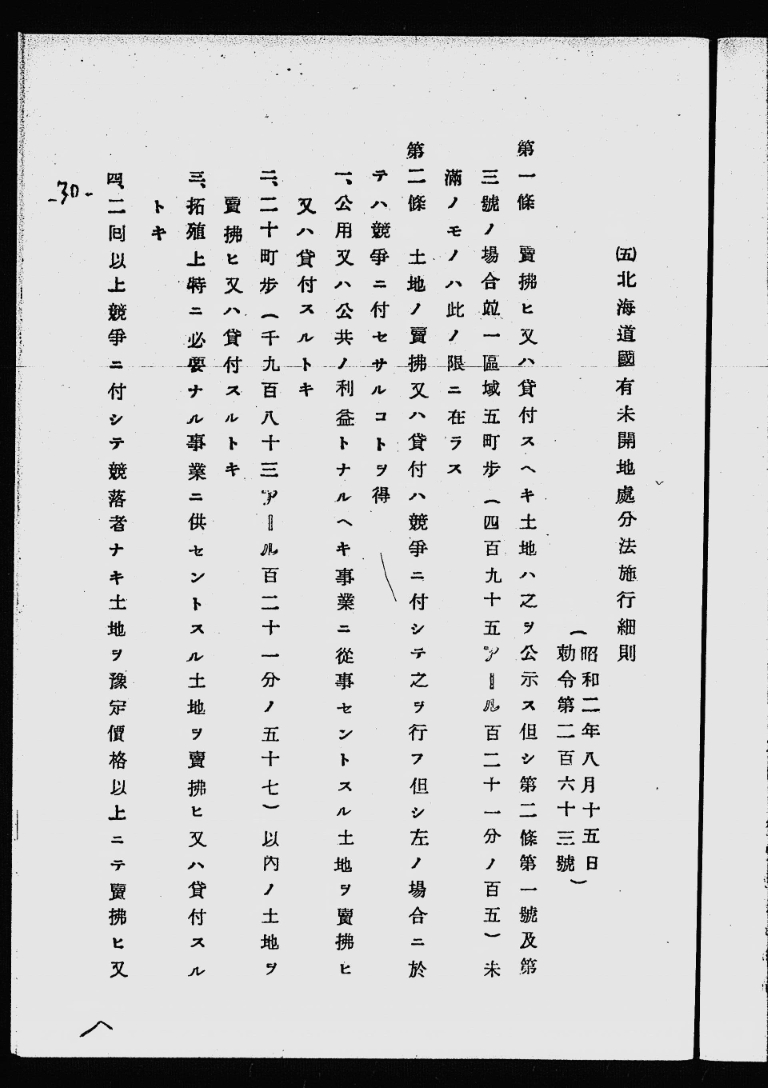 ㈤北海道國有未開地處分法施行細則
（昭和二年八月十五日
勅令第二百六十三號）
第一條　賣拂ヒ又ハ貸付スヘキ土地ハ之ヲ公示ス但シ第二條第一號及第
三號ノ場合竝一區域五町步（四百九十五アール百二十一分ノ百五）未
滿ノモノハ此ノ限ニ在ラス
第二條　土地ノ賣拂又ハ貸付ハ競爭ニ付シテ之ヲ行フ但シ左ノ場合ニ於
テハ競爭ニ付セサルコトヲ得
一、公用又ハ公共ノ利益トナルヘキ事業ニ從事セントスル土地ヲ賣拂ヒ
又ハ貸付スルトキ
二、二十町步（千九百八十三アール百二十一分ノ五十七）以內ノ土地ヲ
賣拂ヒ又ハ貸付スルトキ
三、拓殖上特ニ必要ナル事業ニ供セントスル土地ヲ賣拂ヒ又ハ貸付スル
トキ
四、二回以上競爭ニ付シテ競落者ナキ土地ヲ豫定價格以上ニテ賣拂ヒ又
-30-